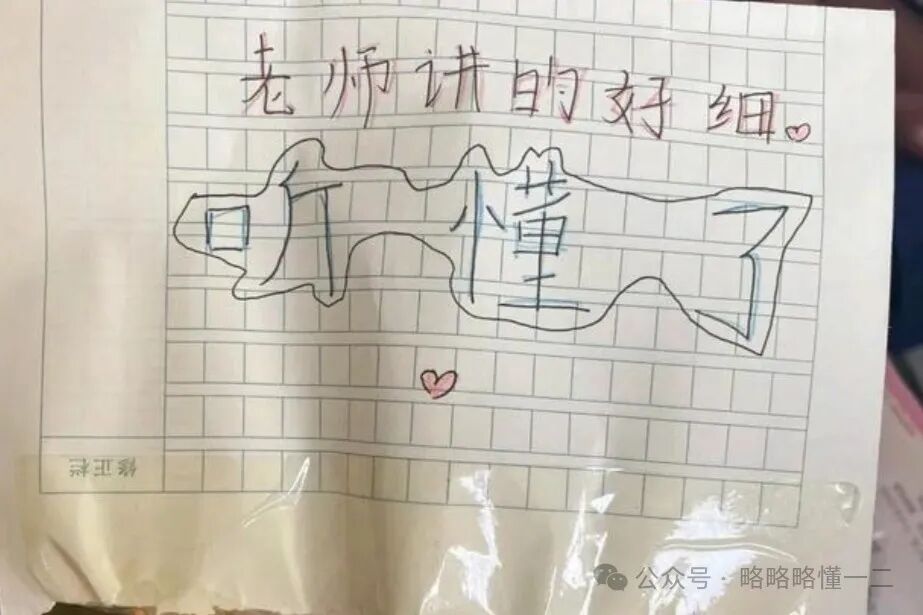 老师讲的好细
听懂了
修正栏
公众号·略略略懂一二